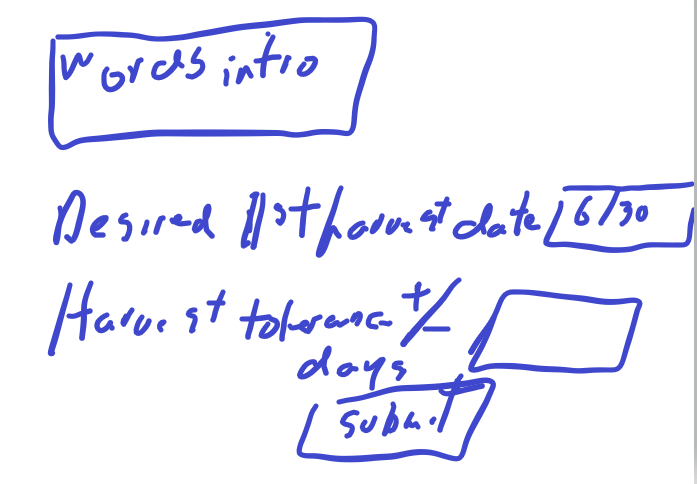 words intro
Desired 1st harvest date 6/30
Harvest tolerance +/-
days
submit